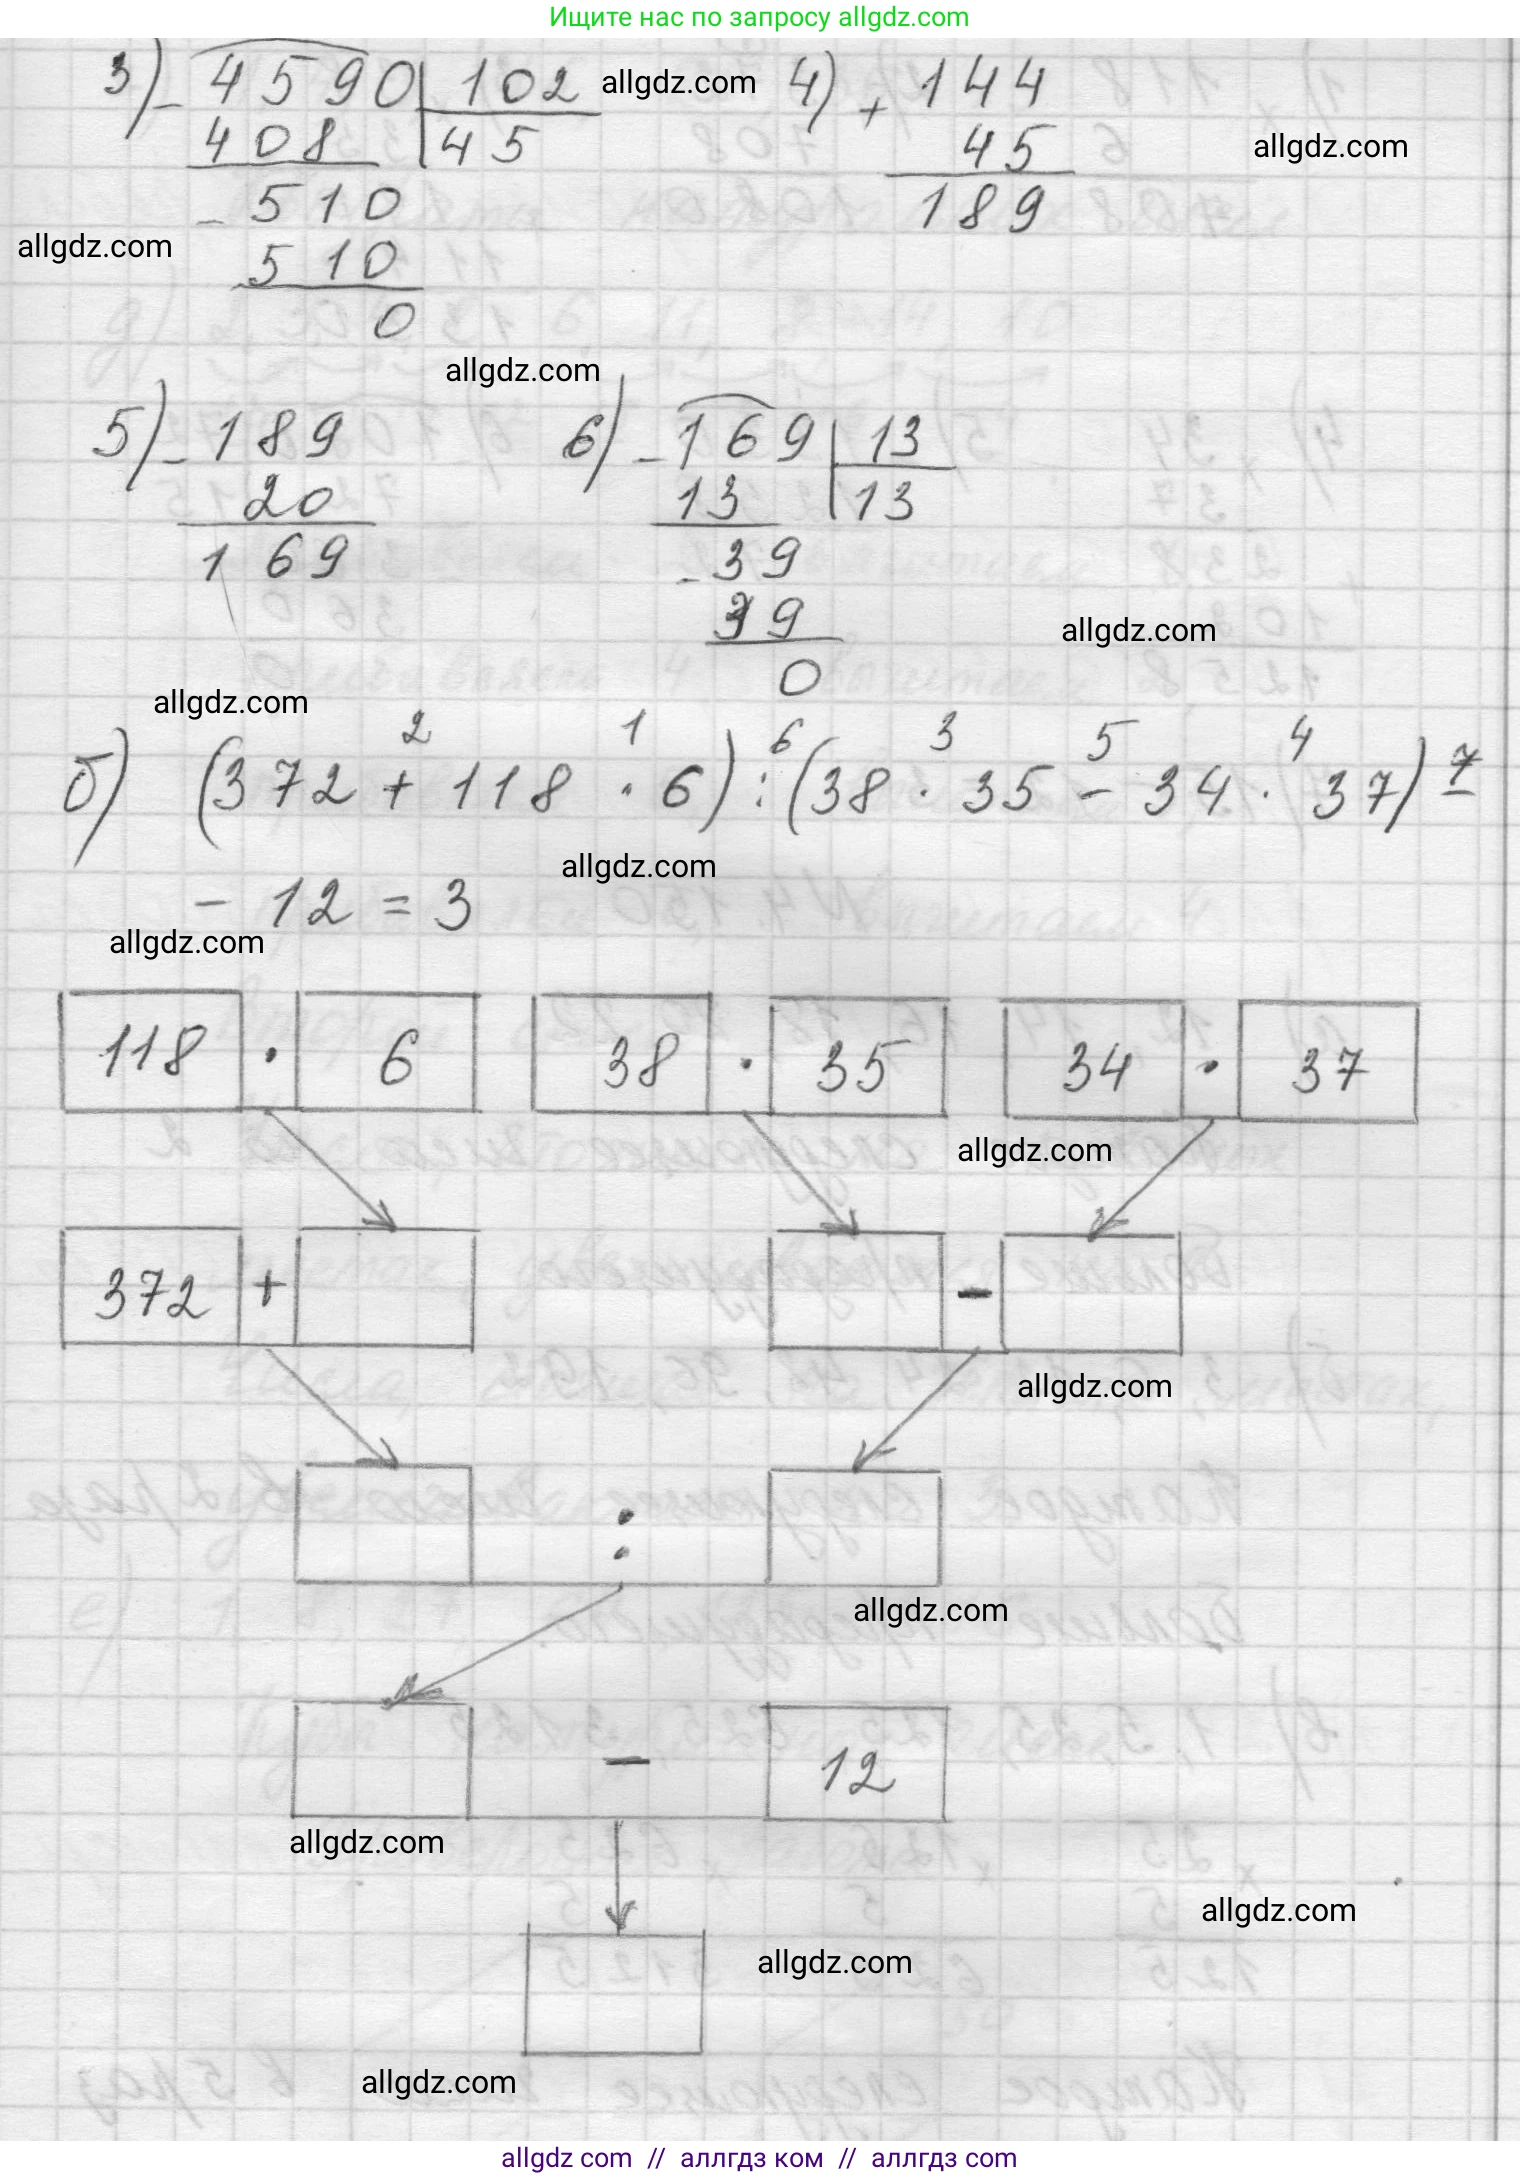 Ищите нас по запросу allgdz.com
3) - 4590 | 102 allgdz.com 4) + 144
408 | 45 45 allgdz.com
- 510 189
allgdz.com 510
0
allgdz.com
5) - 189 6) - 169 | 13
20 13 | 13
169 - 39
39 allgdz.com
0
allgdz.com
2 1 6 3 5 4 7
б) (372 + 118 · 6) : (38 · 35 - 34 · 37) -
allgdz.com
- 12 = 3
allgdz.com
118 · 6 38 · 35 34 · 37
allgdz.com
372 + -
allgdz.com
:
allgdz.com
- 12
allgdz.com
allgdz.com
allgdz.com
allgdz.com
allgdz com // аллгдз ком // аллгдз com